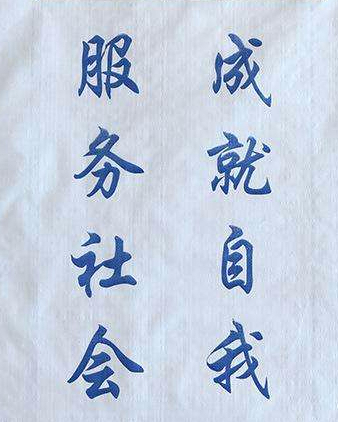 成就自我
服务社会